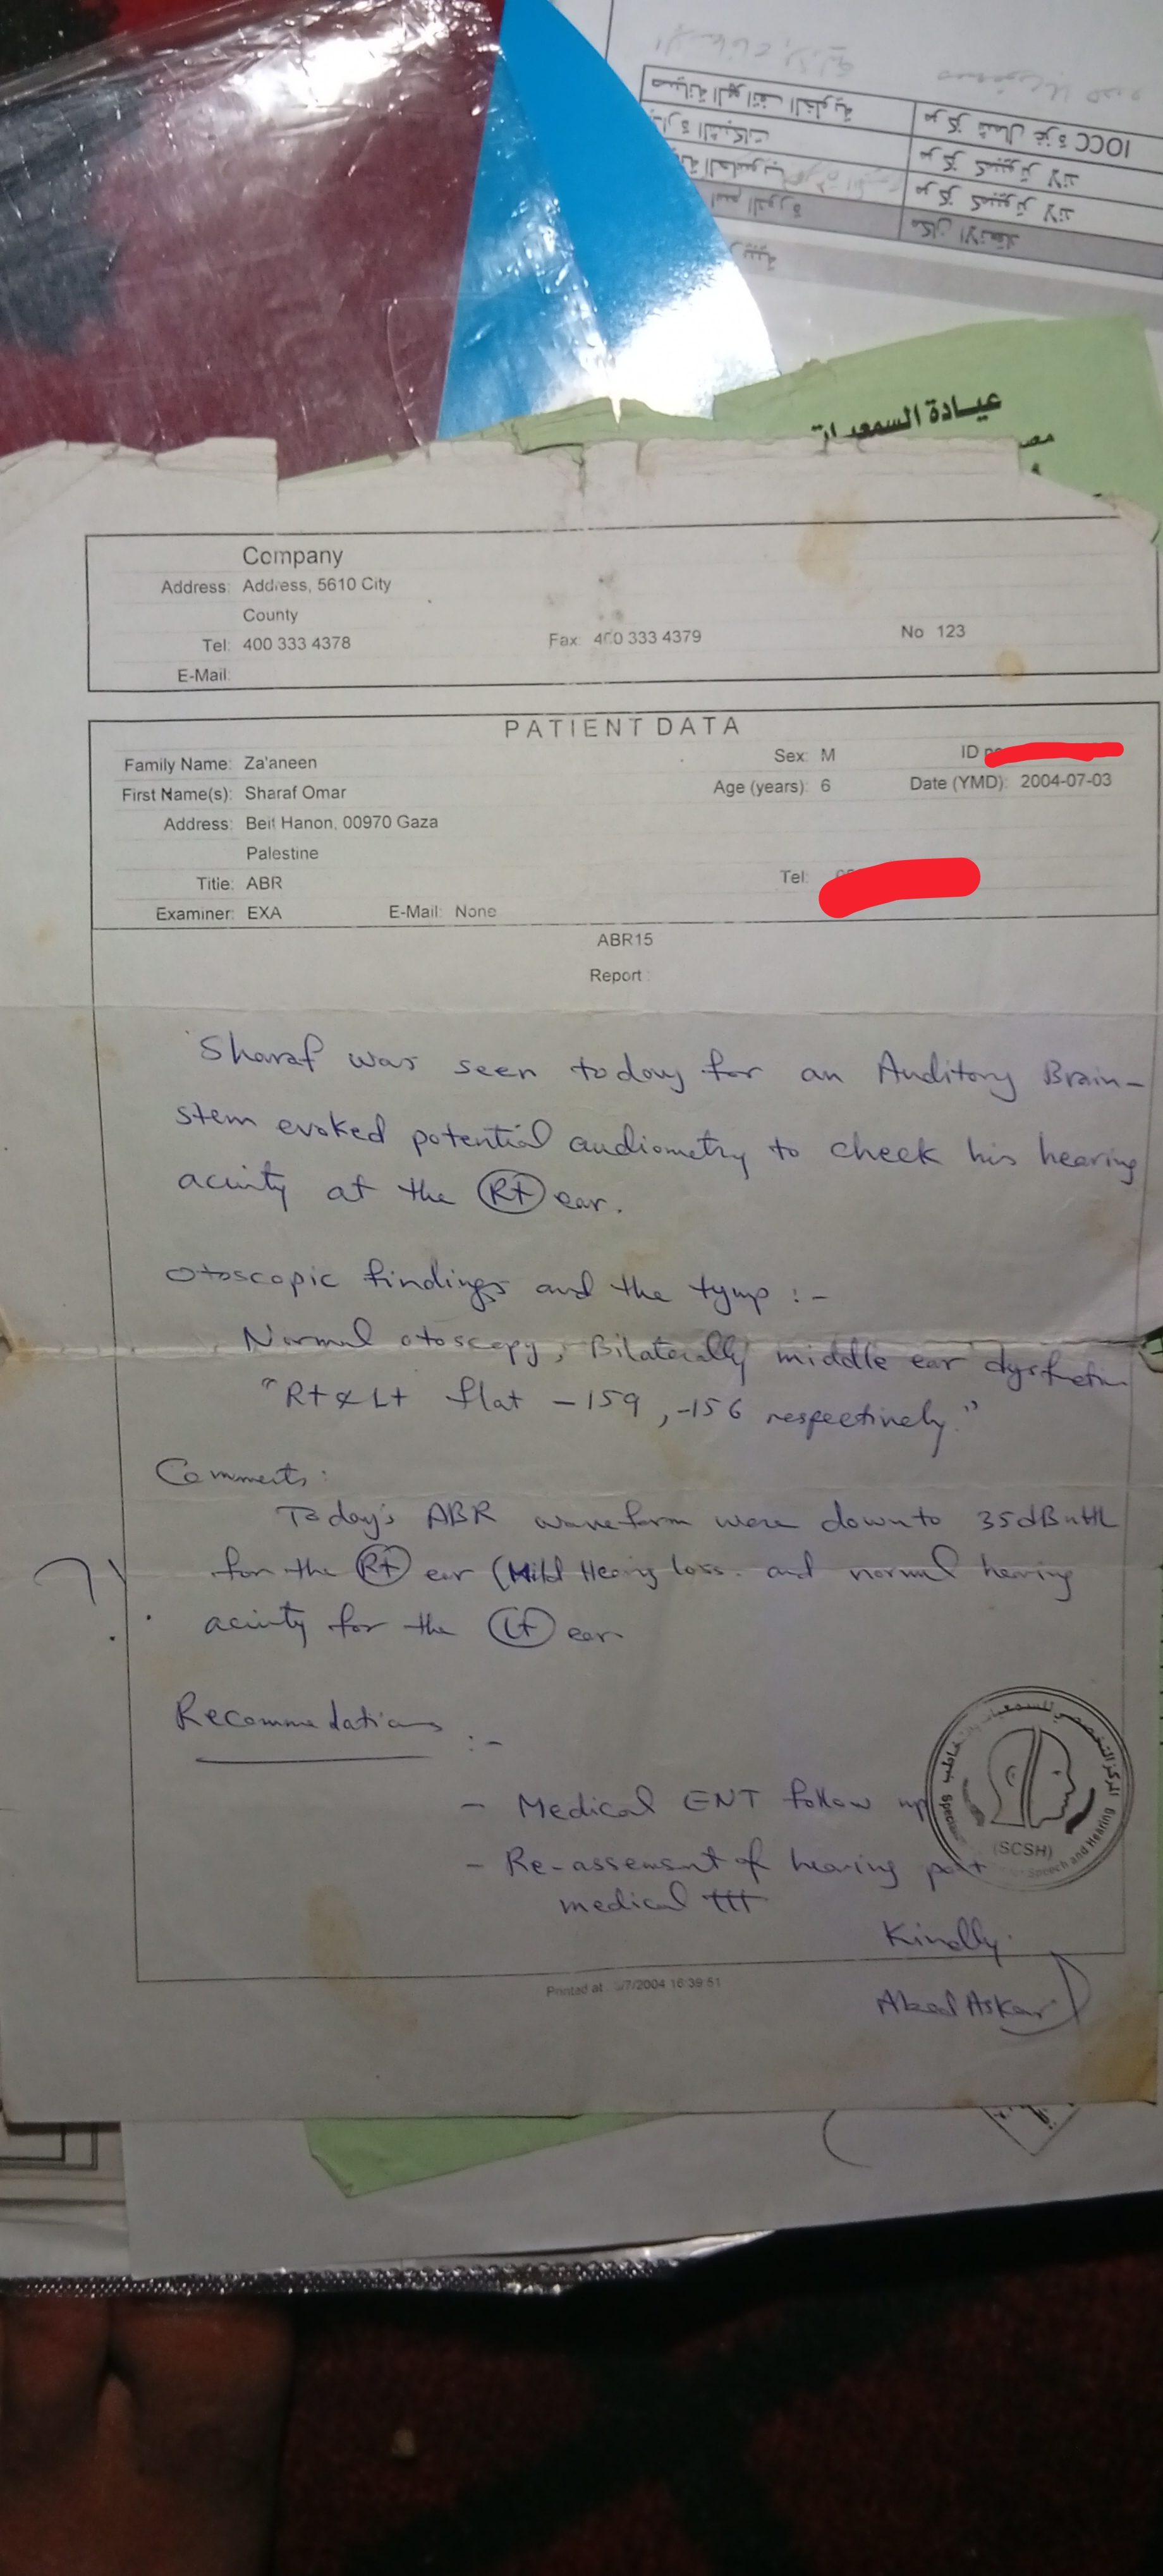 IOCC مركز شمال غزة
صيانة الهواتف الخلوية
مركز كمبيوتر لاند
إدارة الشبكات
مركز كمبيوتر لاند
مكان الانعقاد
اسم الدورة
عيادة السمعيات
Company
Address: Address, 5610 City
County
Tel: 400 333 4378 Fax: 400 333 4379 No 123
E-Mail:
PATIENT DATA
Family Name: Za'aneen Sex: M ID
First Name(s): Sharaf Omar Age (years): 6 Date (YMD): 2004-07-03
Address: Beit Hanon, 00970 Gaza
Palestine
Title: ABR Tel:
Examiner: EXA E-Mail: None
ABR15
Report :
Sharaf was seen today for an Auditory Brain-
stem evoked potential audiometry to check his hearing
acuity at the Rt ear.
Otoscopic findings and the tymp :-
Normal otoscopy, Bilaterally middle ear dysfunction
"Rt & Lt flat -159, -156 respectively."
Comments:
Today's ABR waveform were down to 35dBnHL
for the Rt ear (Mild Hearing loss. and normal hearing
acuity for the Lt ear
Recommendations :-
- Medical ENT follow up
- Re-assessment of hearing post
medical ttt
المركز التخصصي للسمعيات والتخاطب
(SCSH)
Speech and Hearing
Kindly.
Printed at /7/2004 16:39:51
Abed Askar